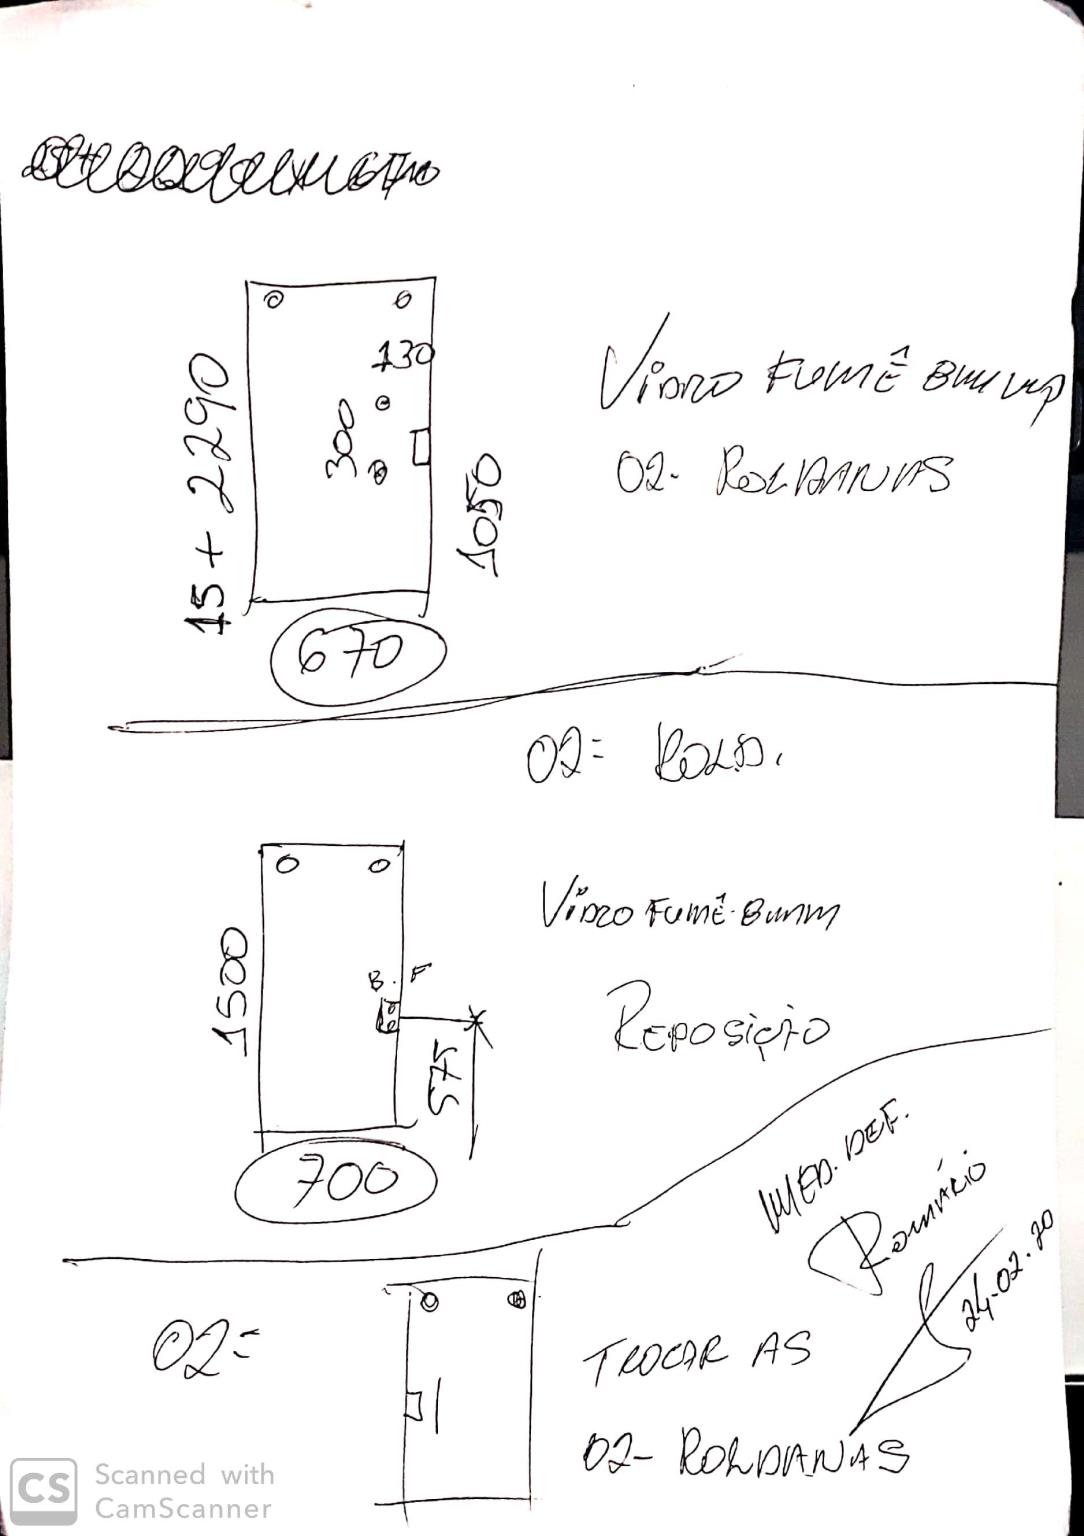 130
300
15 + 2290
1050
670
VIDRO FUMÊ 8MM
02- ROLDANAS
02= ROLD.
VIDRO FUMÊ-8MM
B.F
1500
575
REPOSIÇÃO
700
MED. DEF.
ROMÁRIO
24-02-20
02=
TROCAR AS
02- ROLDANAS
CS Scanned with
CamScanner